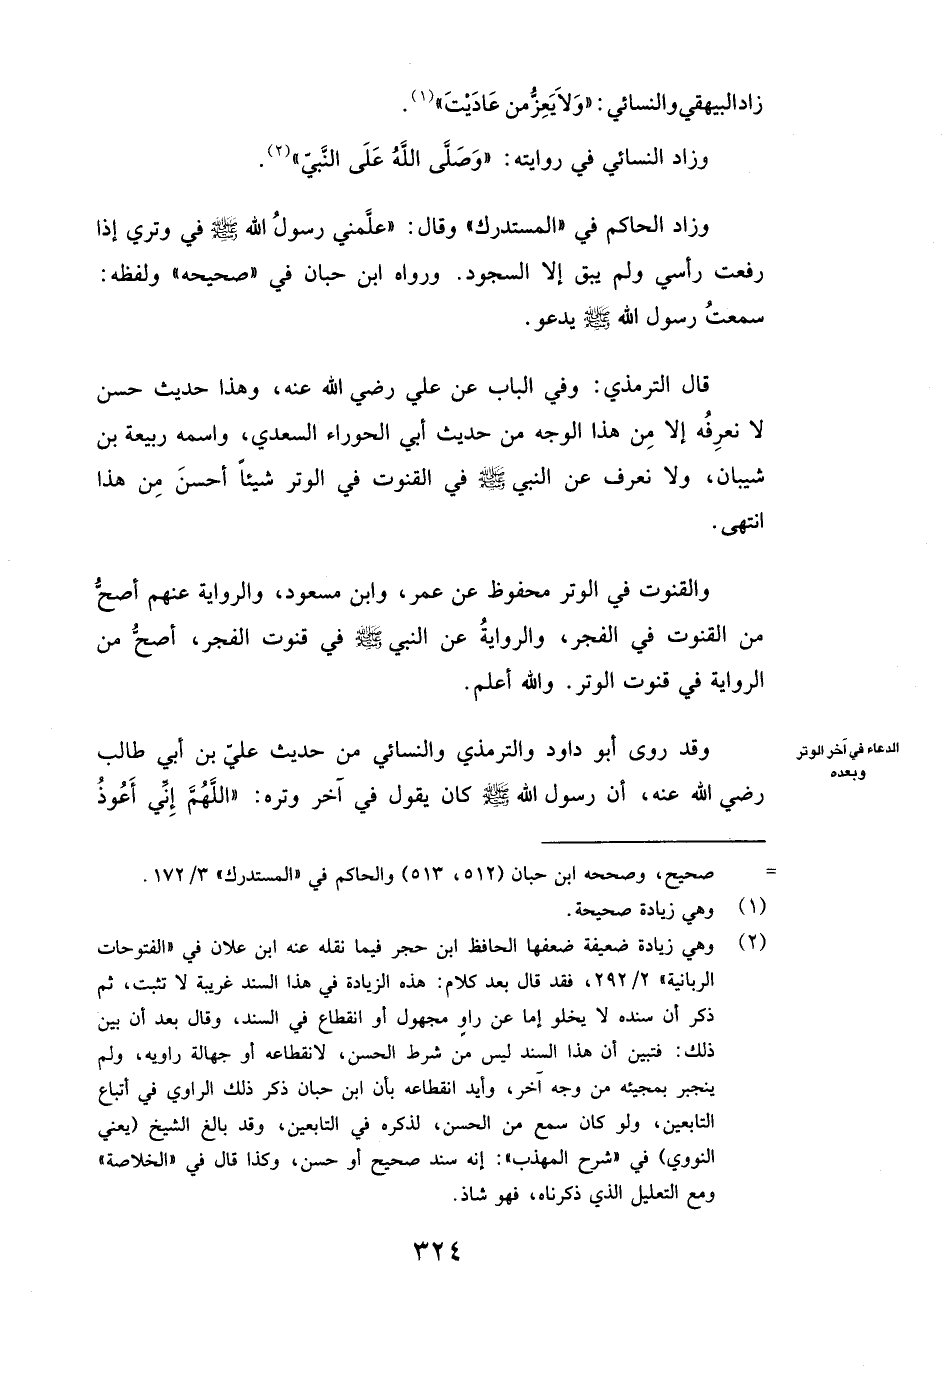 زاد البيهقي والنسائي: «وَلاَ يَعِزُّ من عَادَيْتَ»(١).
وزاد النسائي في روايته: «وَصَلَّى اللَّهُ عَلَى النَّبيّ»(٢).
وزاد الحاكم في «المستدرك» وقال: «علَّمني رسولُ الله ﷺ في وتري إذا
رفعت رأسي ولم يبق إلا السجود. ورواه ابن حبان في «صحيحه» ولفظه:
سمعتُ رسول الله ﷺ يدعو.
قال الترمذي: وفي الباب عن علي رضي الله عنه، وهذا حديث حسن
لا نعرِفُه إلا مِن هذا الوجه من حديث أبي الحوراء السعدي، واسمه ربيعة بن
شيبان، ولا نعرف عن النبي ﷺ في القنوت في الوتر شيئاً أحسنَ مِن هذا
انتهى.
والقنوت في الوتر محفوظ عن عمر، وابن مسعود، والرواية عنهم أصحُّ
من القنوت في الفجر، والروايةُ عن النبي ﷺ في قنوت الفجر، أصحُّ من
الرواية في قنوت الوتر. والله أعلم.
الدعاء في آخر الوتر
وبعده
وقد روى أبو داود والترمذي والنسائي من حديث عليّ بن أبي طالب
رضي الله عنه، أن رسول الله ﷺ كان يقول في آخر وتره: «اللَّهُمَّ إِنِّي أَعُوذُ
= صحيح، وصححه ابن حبان (٥١٢، ٥١٣) والحاكم في «المستدرك» ٣/ ١٧٢.
(١) وهي زيادة صحيحة.
(٢) وهي زيادة ضعيفة ضعفها الحافظ ابن حجر فيما نقله عنه ابن علان في «الفتوحات
الربانية» ٢/ ٢٩٢، فقد قال بعد كلام: هذه الزيادة في هذا السند غريبة لا تثبت، ثم
ذكر أن سنده لا يخلو إما عن راوٍ مجهول أو انقطاع في السند، وقال بعد أن بين
ذلك: فتبين أن هذا السند ليس من شرط الحسن، لانقطاعه أو جهالة راويه، ولم
ينجبر بمجيئه من وجه آخر، وأيد انقطاعه بأن ابن حبان ذكر ذلك الراوي في أتباع
التابعين، ولو كان سمع من الحسن، لذكره في التابعين، وقد بالغ الشيخ (يعني
النووي) في «شرح المهذب»: إنه سند صحيح أو حسن، وكذا قال في «الخلاصة»
ومع التعليل الذي ذكرناه، فهو شاذ.
٣٢٤